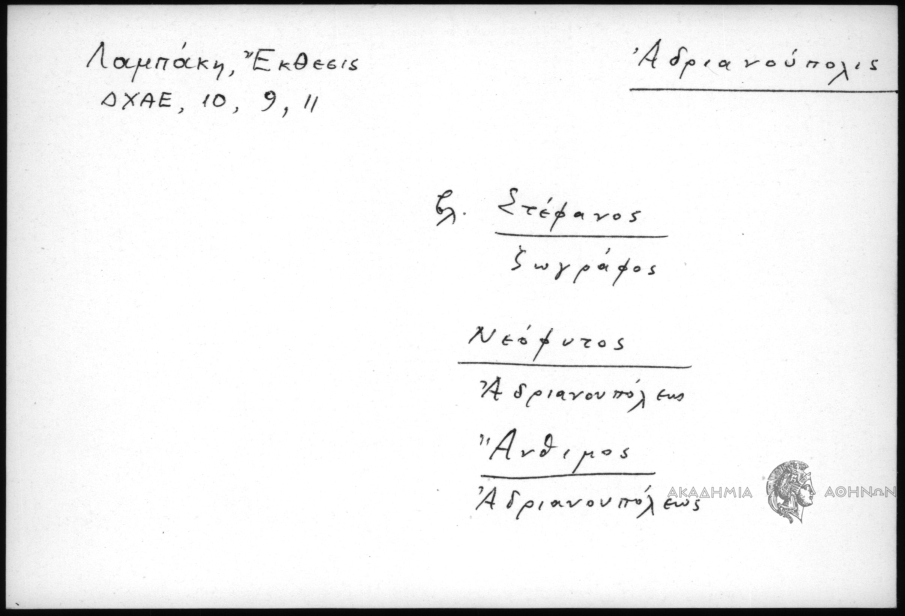 Λαμπάκη, Ἔκθεσις
ΔΧΑΕ, 10, 9, 11
Ἀδριανούπολις
βλ. Στέφανος
ζωγράφος
Νεόφυτος
Ἀδριανουπόλεως
Ἄνθιμος
Ἀδριανουπόλεως
ΑΚΑΔΗΜΙΑ ΑΘΗΝΩΝ